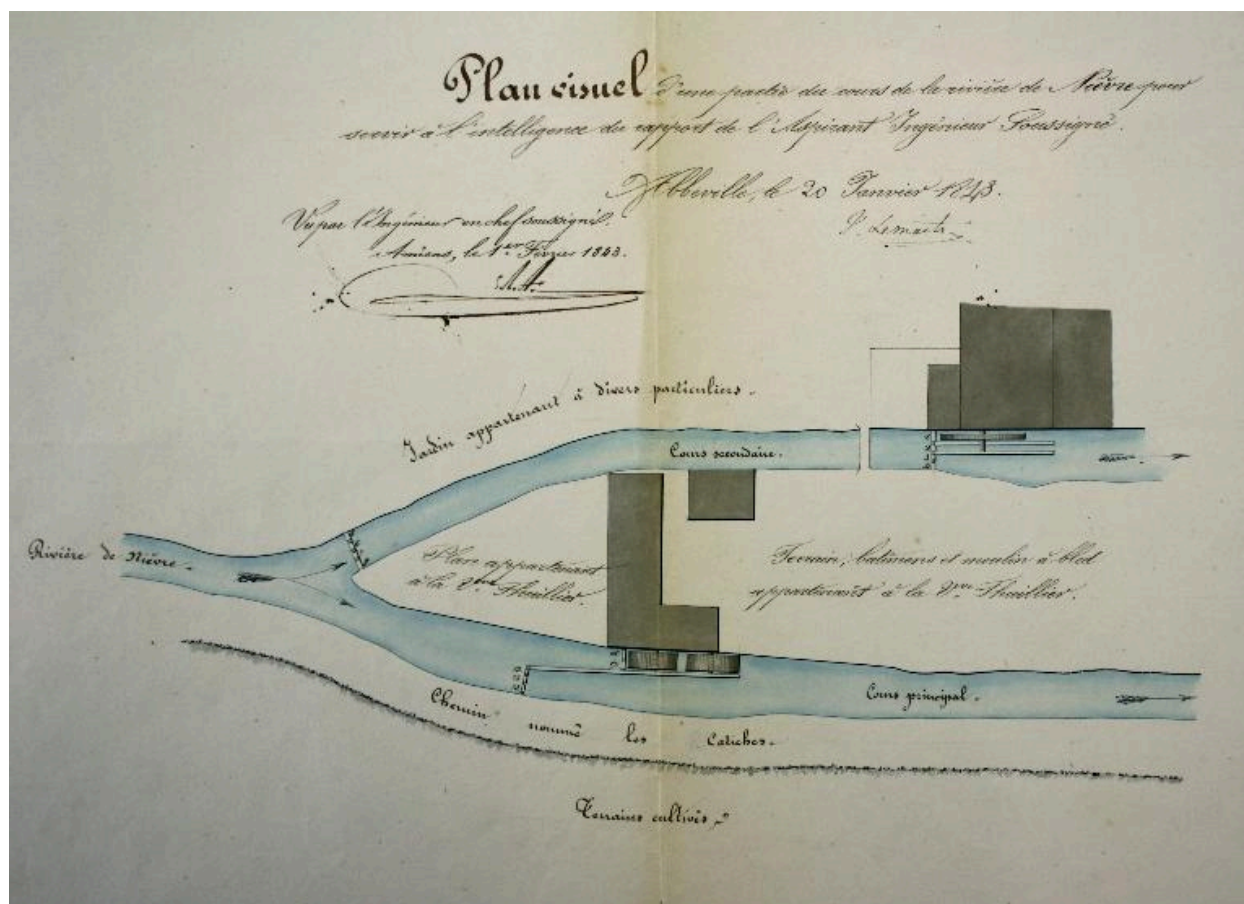 Plan visuel d'une partie du cours de la rivière de Nièvre pour
servir à l'intelligence du rapport de l'Aspirant Ingénieur Soussigné.
Abbeville, le 20 Janvier 1843.
Vu par l'Ingénieur en chef soussigné.
Amiens, le 1er Février 1843.
Jardin appartenant à divers particuliers.
Cours secondaire.
Rivière de Nièvre.
appartenant
à la Vve Thuillier.
Terrain, batimens et moulin à bled
appartenant à la Vve Thuillier.
Cours principal.
Chemin nommé les Catiches.
Terrains cultivés